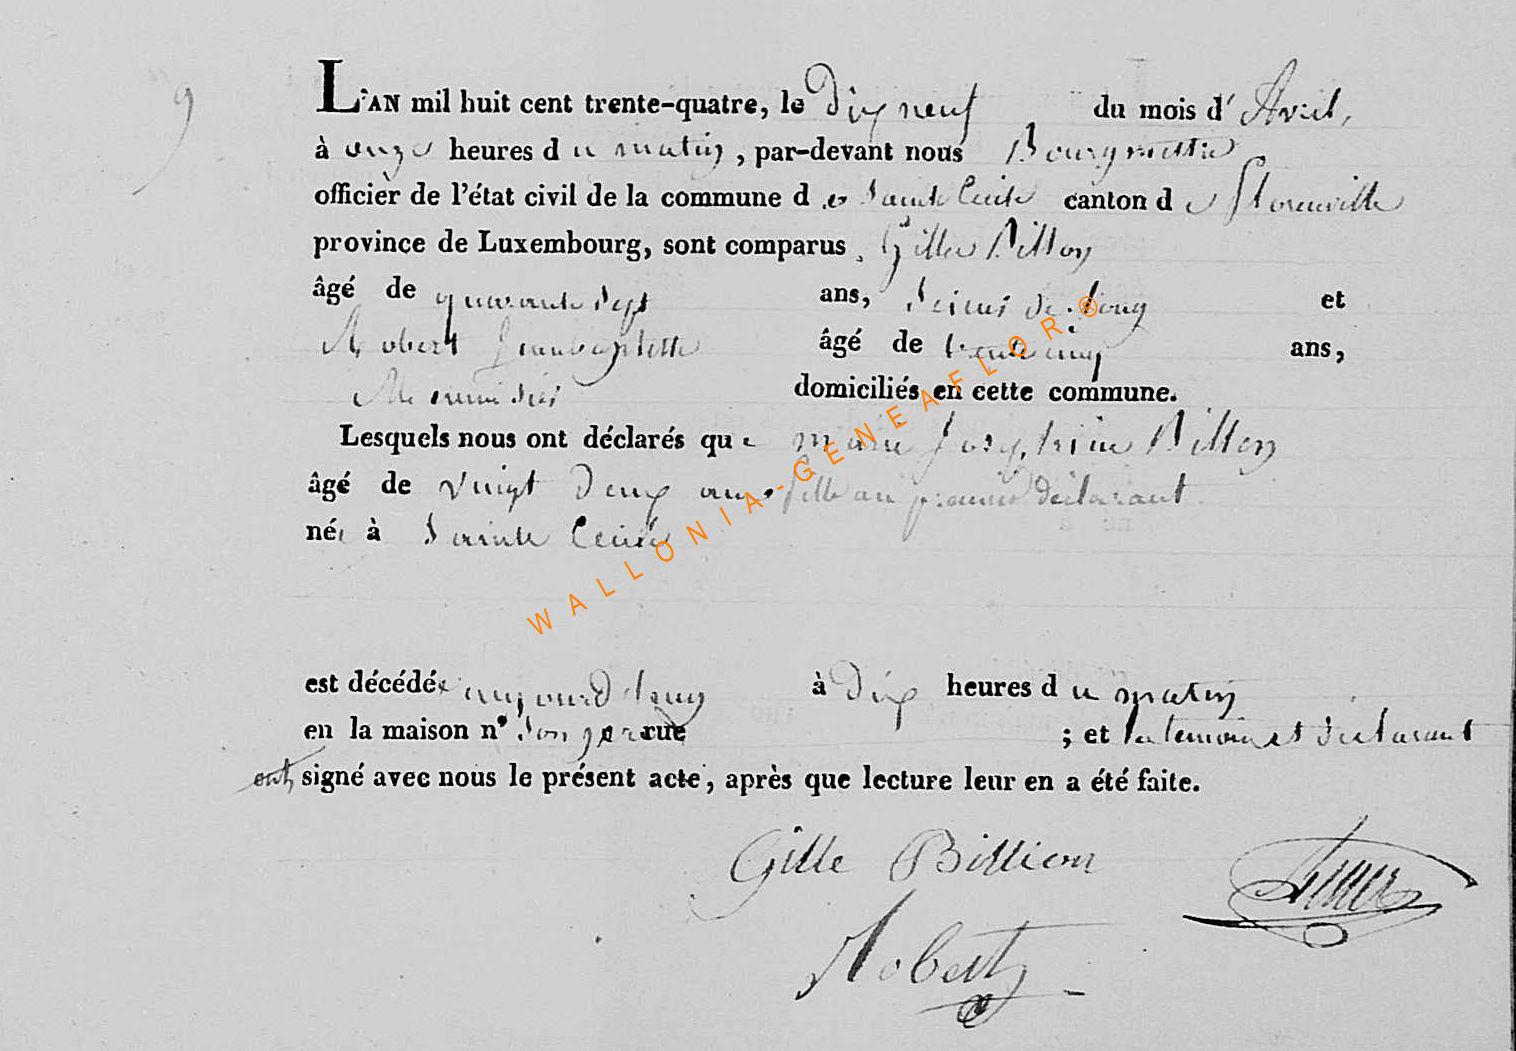 9
L'AN mil huit cent trente-quatre, le Dix neuf du mois d' Avril,
à onze heures du matin, par-devant nous Bourgmestre
officier de l'état civil de la commune de Sainte Cecile canton de Florenville
province de Luxembourg, sont comparus Gille Billon
âgé de quarante sept ans, Scieur de Long et
Robert Jeanbaptiste âgé de trente cinq ans,
Menuisier domiciliés en cette commune.
Lesquels nous ont déclarés que marie Josephine Billon
âgé de vingt Deux ans fille au premier déclarant
née à Sainte Cecile
est décédée aujourd'huy à Dix heures du matin
en la maison n° son pere rue ; et les temoins et déclarant
ont signé avec nous le présent acte, après que lecture leur en a été faite.
Gille Billion
Robert
WALLONIA-GENEAFLOR®